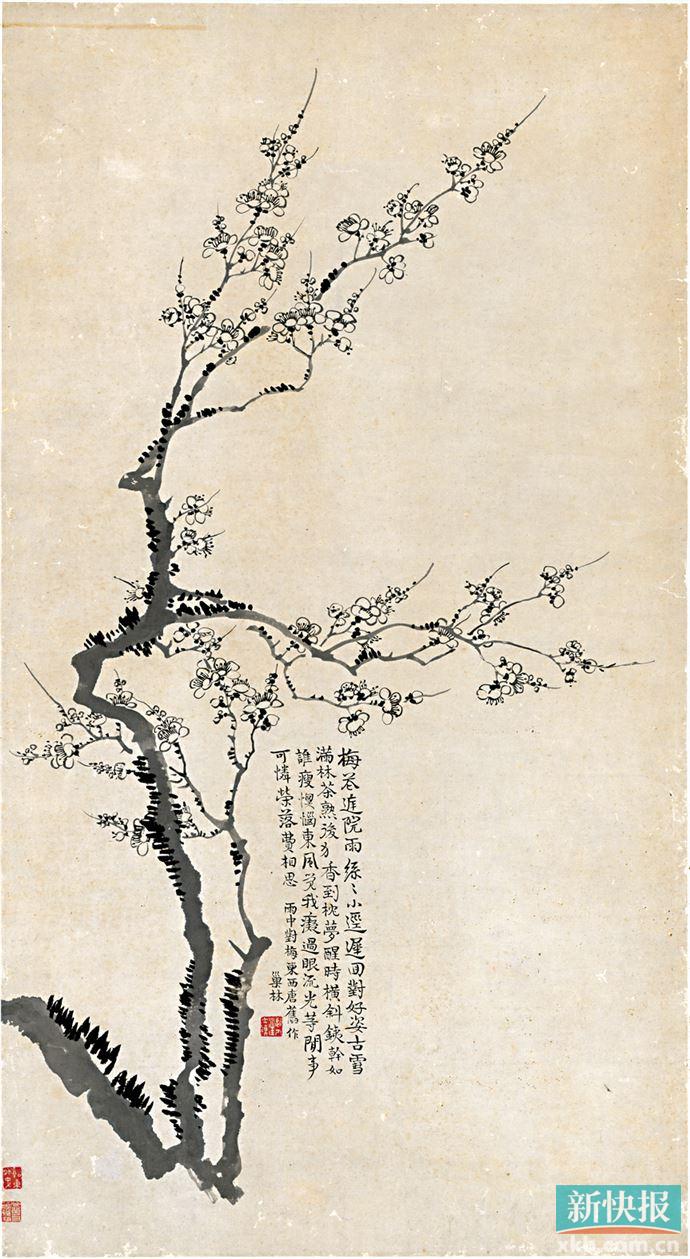 梅花遶院雨絲〻小逕遲回對好姿古雪
滿林茶熟後分香到枕夢醒時橫斜鐵幹如
誰瘦懊惱東風笑我癡過眼流光等閒事
可憐榮落費相思 雨中對梅柬西唐舊作
巢林
新快报
xkb.com.cn